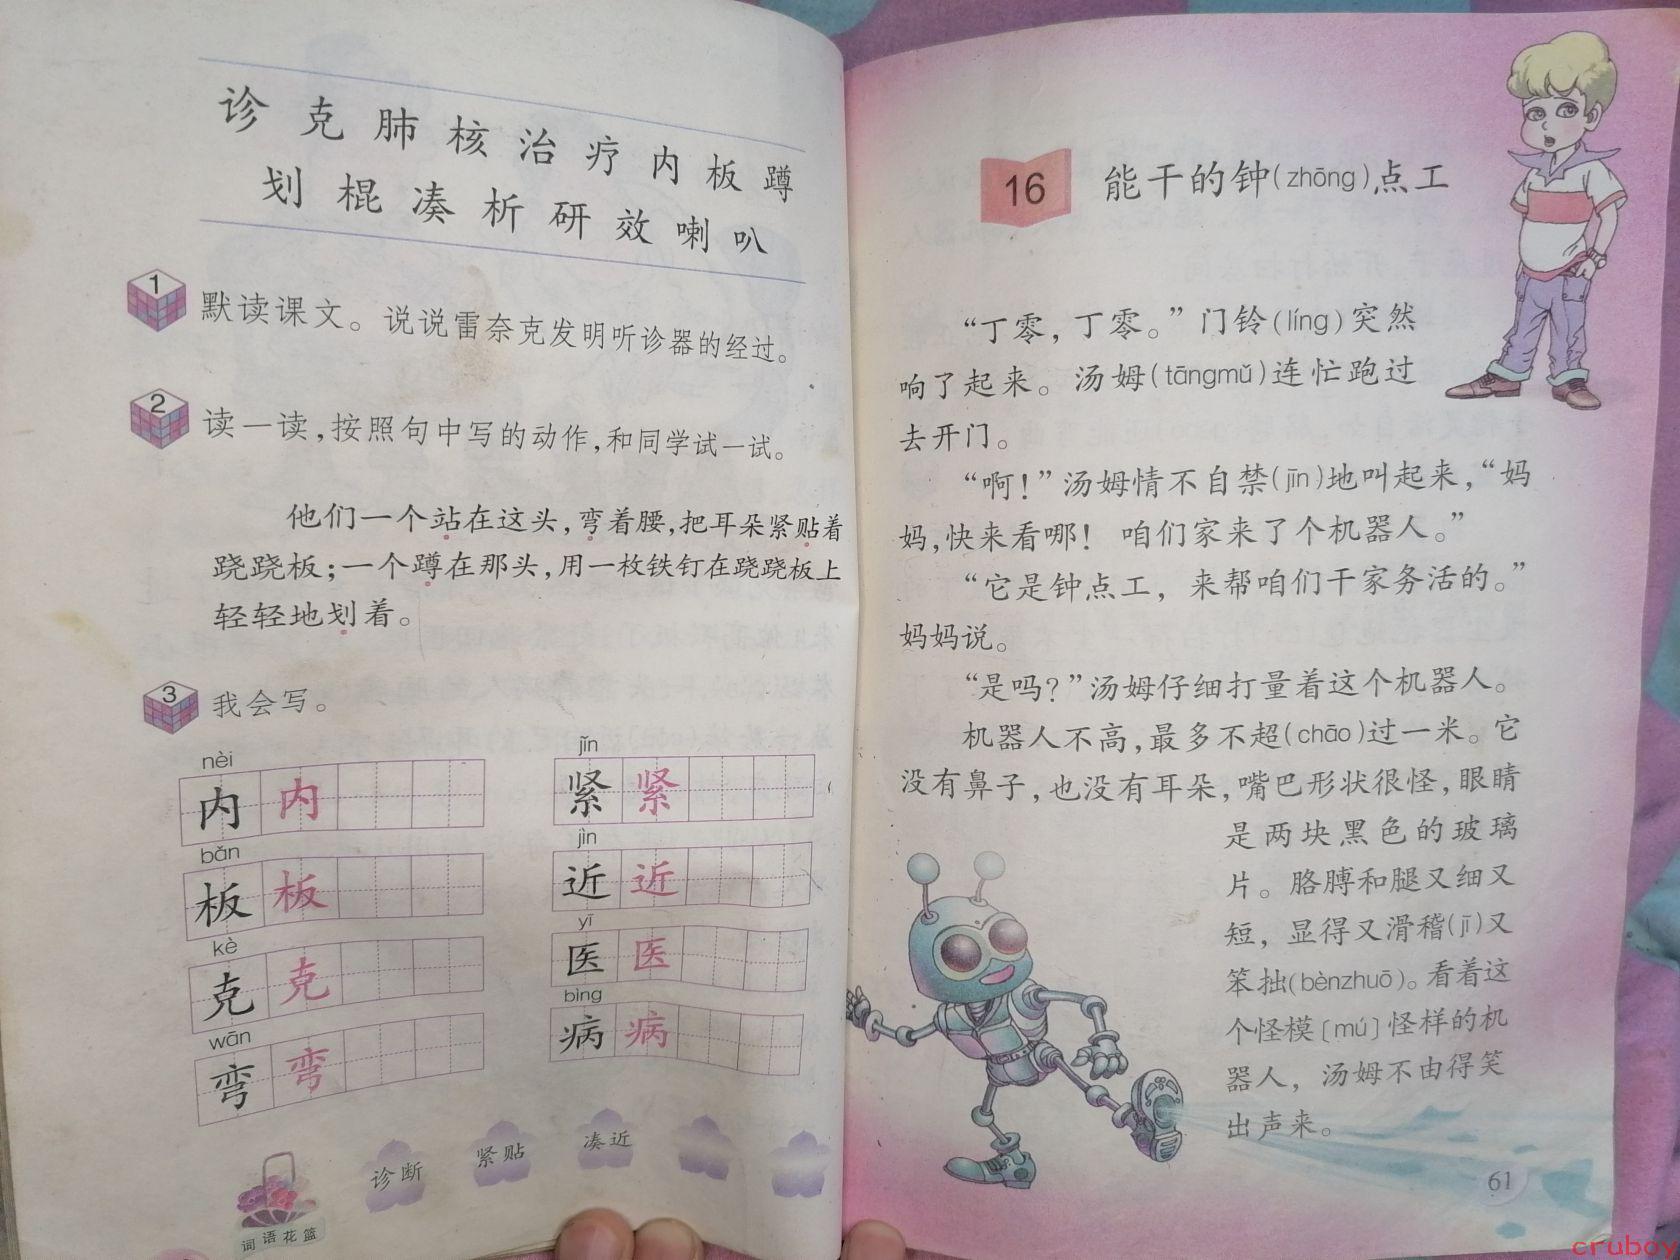 诊克肺核治疗内板蹲
划棍凑析研效喇叭
1 默读课文。说说雷奈克发明听诊器的经过。
2 读一读,按照句中写的动作,和同学试一试。
他们一个站在这头,弯着腰,把耳朵紧贴着
跷跷板;一个蹲在那头,用一枚铁钉在跷跷板上
轻轻地划着。
3 我会写。
nèi
内 内
bǎn
板 板
kè
克 克
wān
弯 弯
jǐn
紧 紧
jìn
近 近
yī
医 医
bìng
病 病
词语花篮
诊断 紧贴 凑近
16 能干的钟(zhōng)点工
“丁零,丁零。”门铃(líng)突然
响了起来。汤姆(tāngmǔ)连忙跑过
去开门。
“啊!”汤姆情不自禁(jīn)地叫起来,“妈
妈,快来看哪! 咱们家来了个机器人。”
“它是钟点工,来帮咱们干家务活的。”
妈妈说。
“是吗?”汤姆仔细打量着这个机器人。
机器人不高,最多不超(chāo)过一米。它
没有鼻子,也没有耳朵,嘴巴形状很怪,眼睛
是两块黑色的玻璃
片。胳膊和腿又细又
短,显得又滑稽(jī)又
笨拙(bènzhuō)。看着这
个怪模〔mú〕怪样的机
器人,汤姆不由得笑
出声来。
61
cruboy